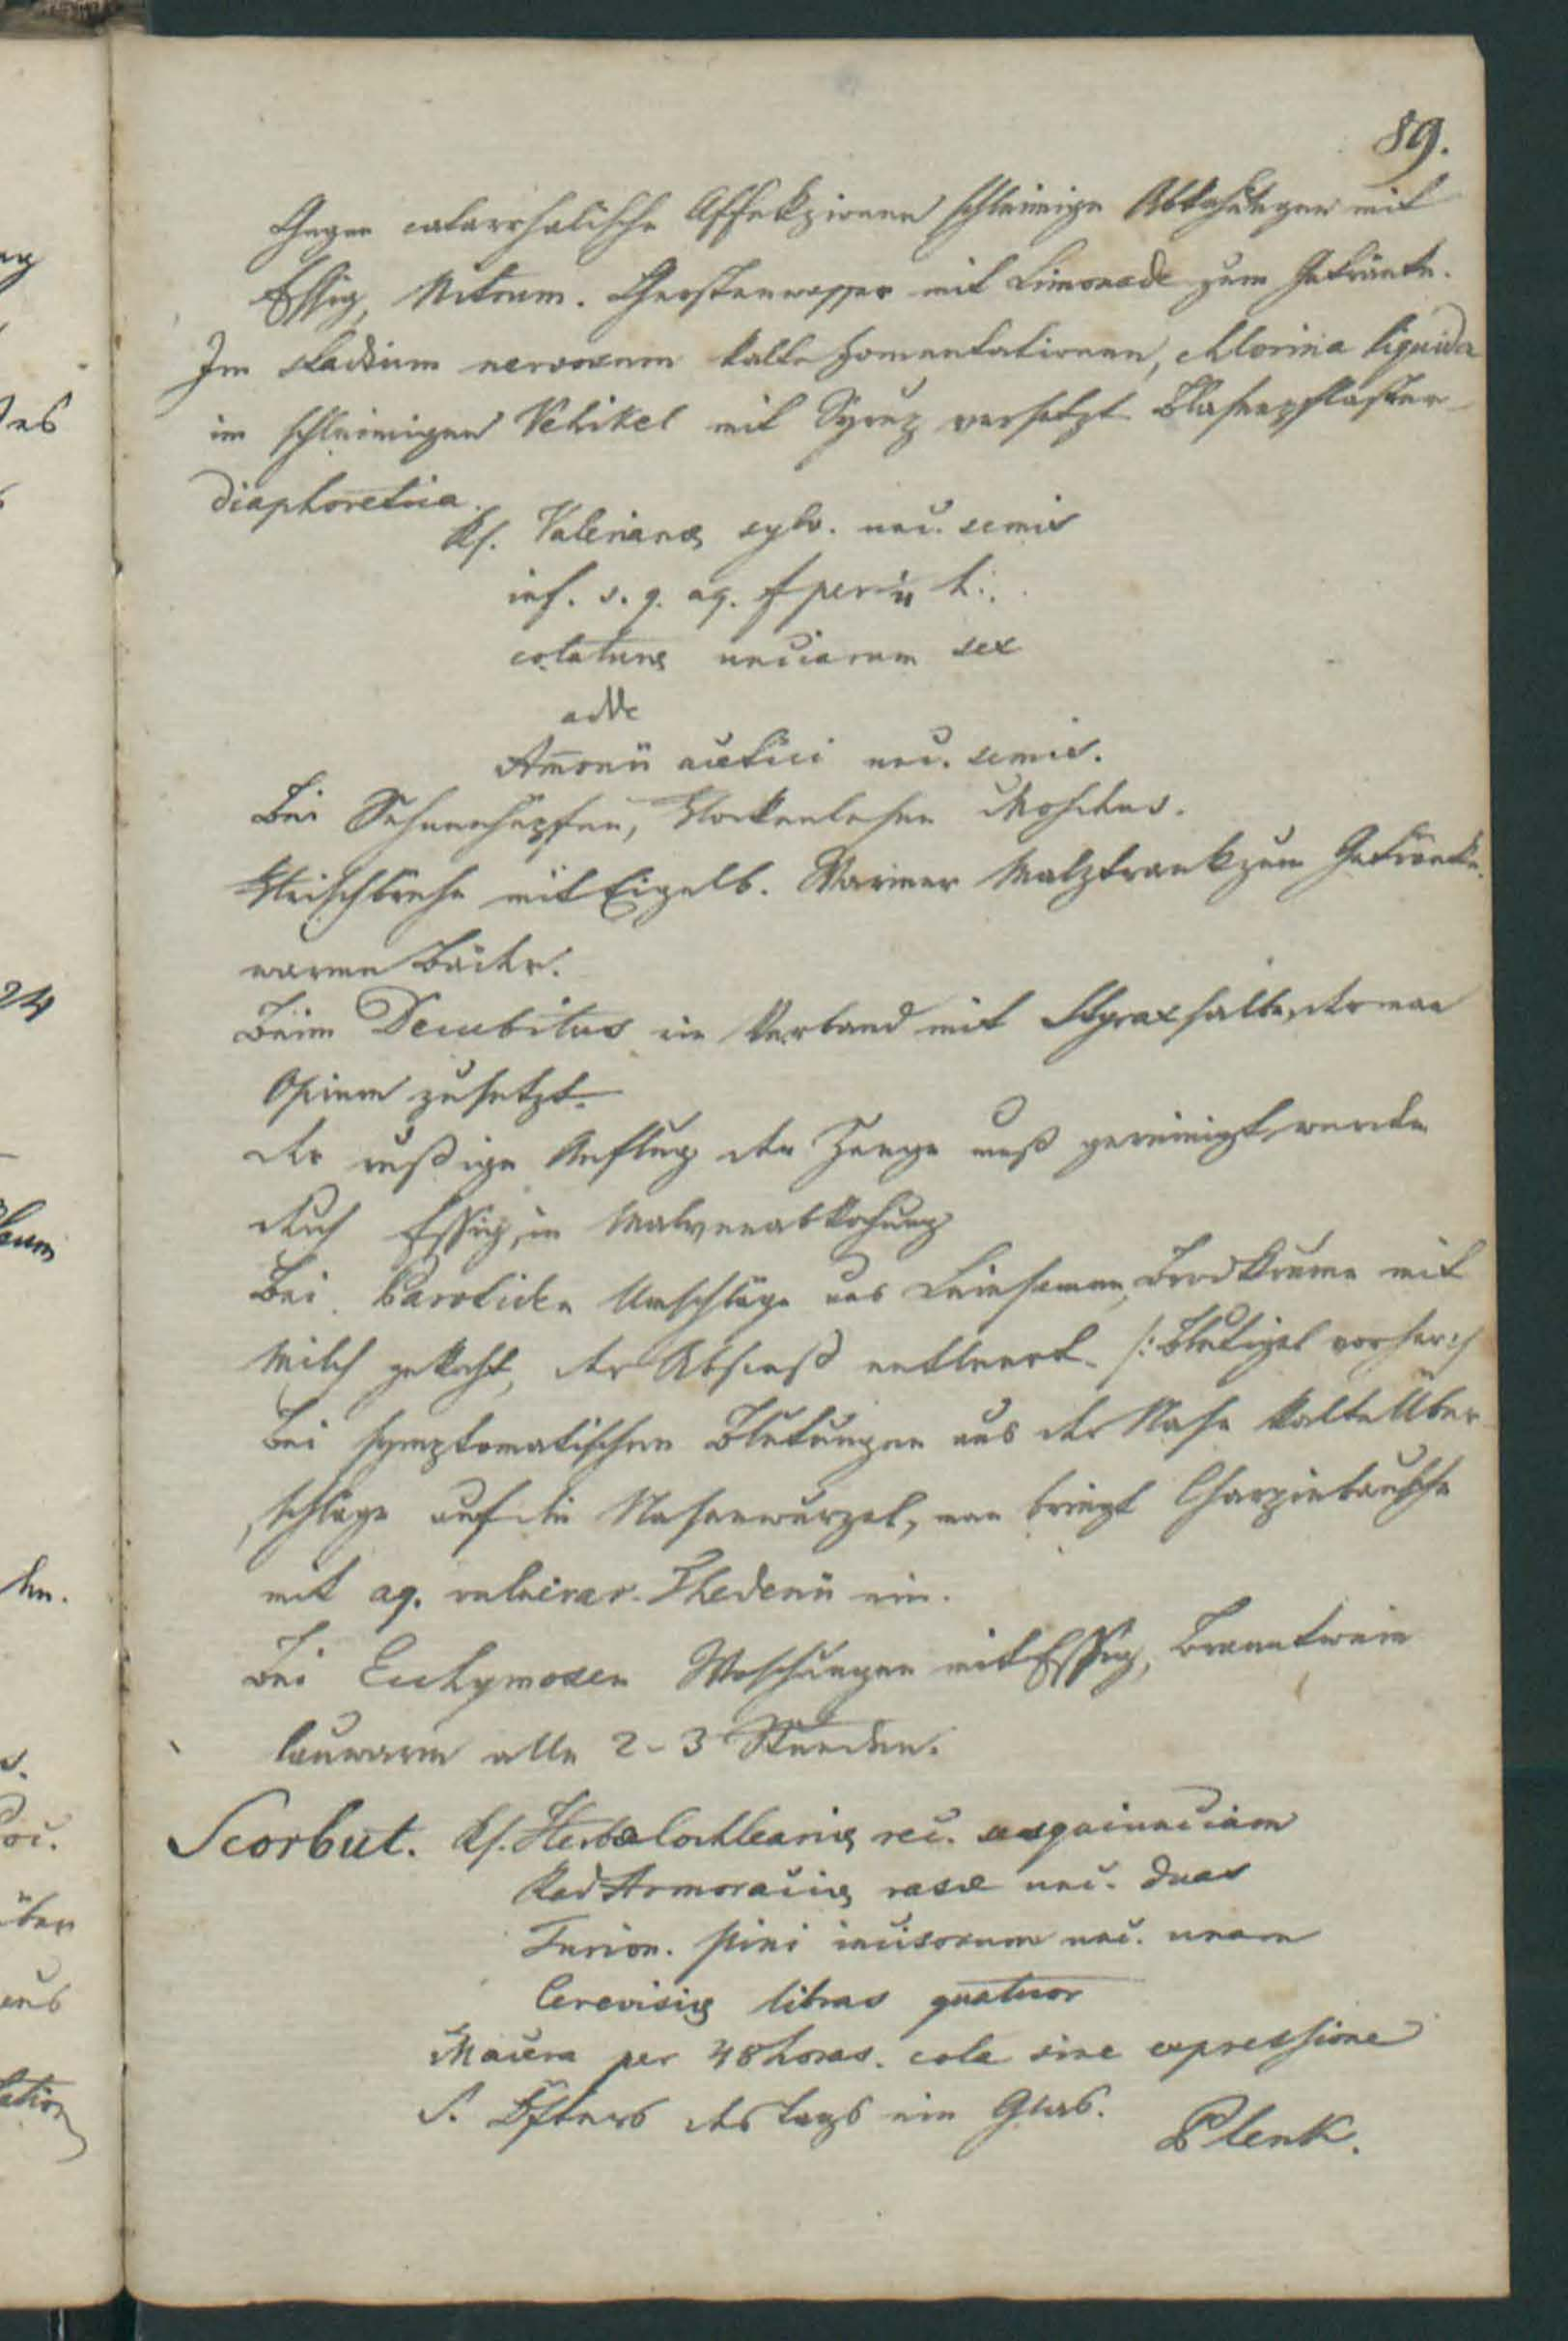 89.
Gegen catarrhalische Affekzionen schleimige Abkochungen mit
Essig, Nitrum. Gerstenwasser mit Limonade zum Getränke.
Im stadium nervosum kalte Fomentationen, chlorina liquida
im schleimigen Vehikel mit Syrup versetzt Blasenpflaster
diaphoretica.
Rf. Valerianæ sylv. unc. semis
inf. s. q. aq. f per ½ h.
colaturæ unciarum sex
adde
Am̄onii acetici unc. semis.
Bei Sehnenhüpfen, Flockenlesen Moschus.
Fleischbrühe mit Eigelb. Warmer Malztrank zum Getränke.
warme Bäder.
Beim Decubitus ein Verband mit Styraxsalbe, der man
Opium zusetzt.
der rußige Anflug der Zunge muß gereinigt werden
durch Essig, in Malvenabkochung
Bei Parotiden Umschläge aus Leinsamen, Brodkrume mit
Milch gekocht, der Abscess entleert. /: Blutigel vorher :/
Bei symptomatischen Blutungen aus der Nase kalte Über-
schläge auf die Nasenwurzel, man bringt Charpiebäusche
mit aq. vulnerar. Thedenii ein.
Bei Ecchymosen Waschungen mit Essig, Branntwein
lauwarm alle 2-3 Stunden.
Scorbut. Rf. Herbæ Cochleariæ rec. sesquiunciam
Rad Armoraciæ rasæ unc. duas
Turion. pini incisorum unc. unam
Cerevisiæ libras quatuor
Macera per 48 horas. cola sine expressione
S. Öfters des tags ein Glas.
Plenk.